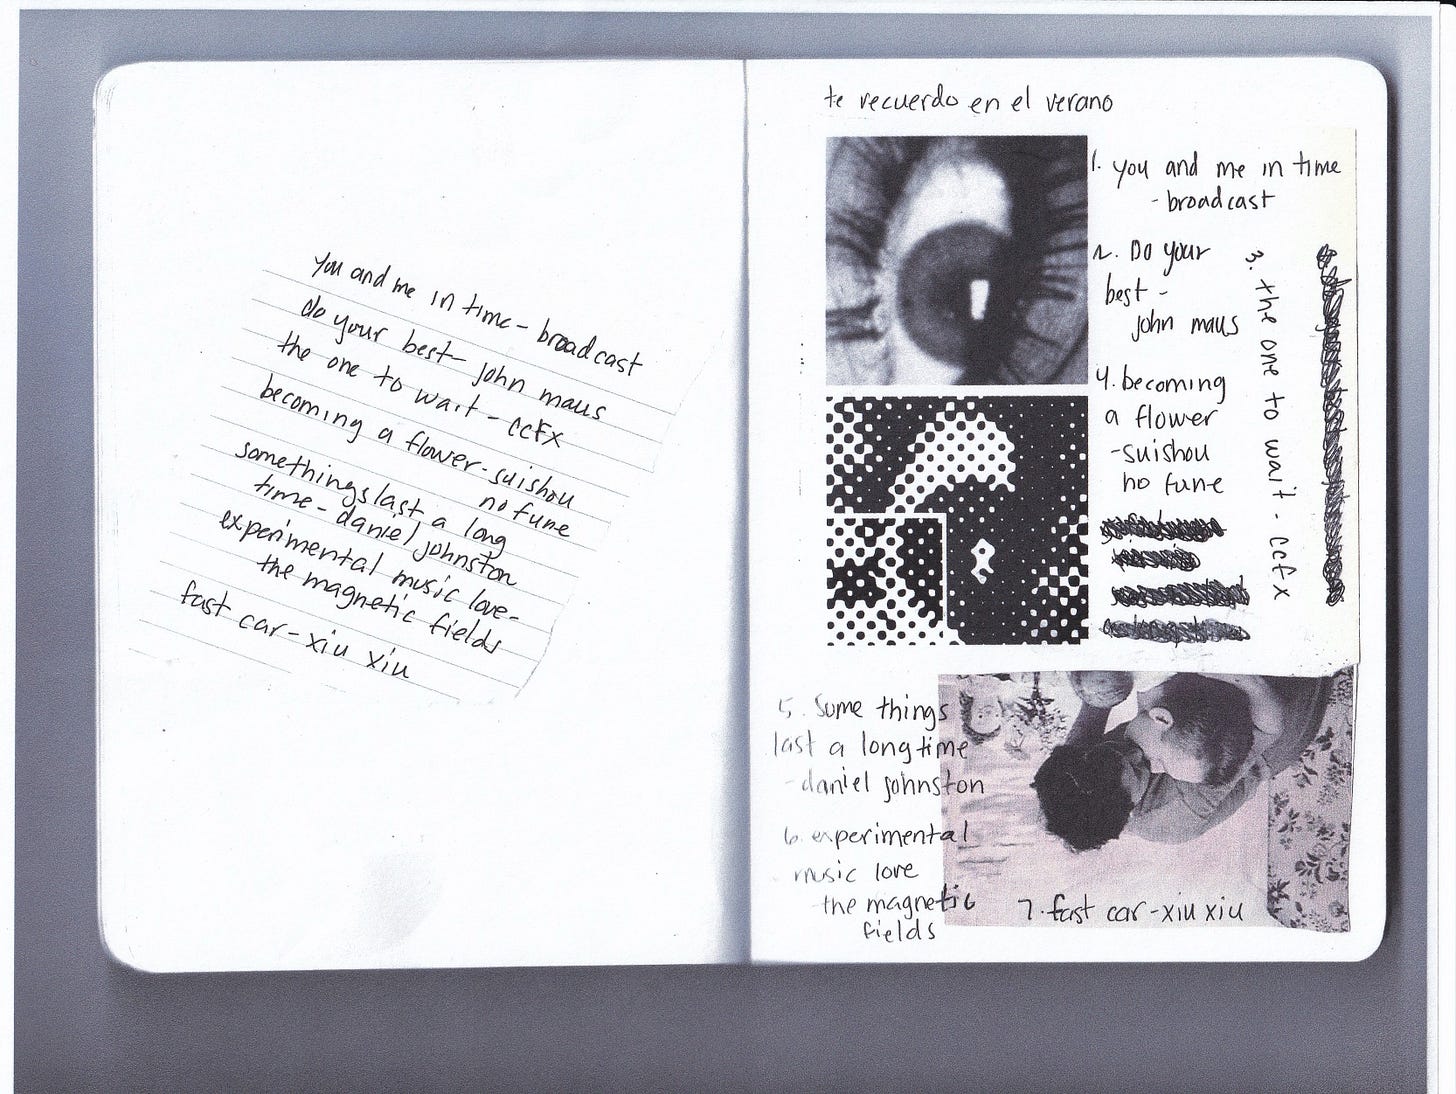 you and me in time - broadcast
do your best - john maus
the one to wait - ccFx
becoming a flower - suishou
no fune
somethings last a long
time - daniel johnston
experimental music love -
the magnetic fields
fast car - xiu xiu
te recuerdo en el verano
1. you and me in time
- broadcast
2. Do your
best -
john maus
3. the one to wait - ccfx
4. becoming
a flower
- suishou
no fune
5. Some things
last a long time
- daniel johnston
6. experimental
music love
the magnetic
fields
7. fast car - xiu xiu